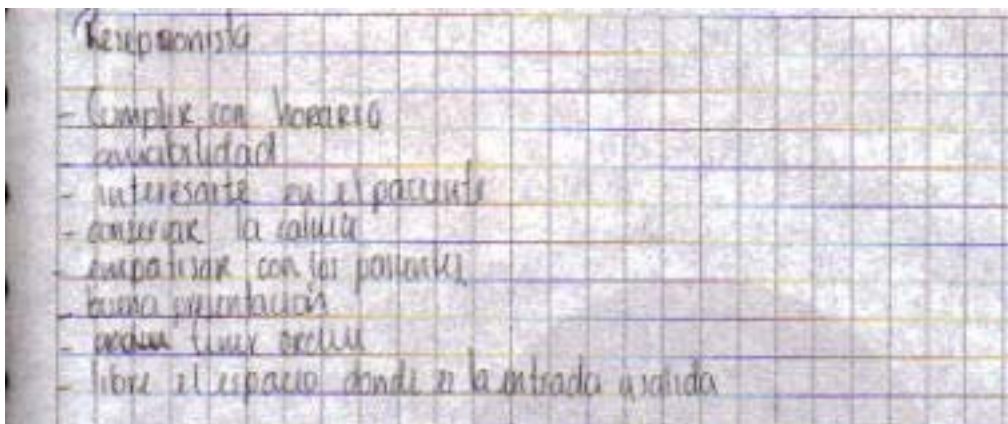 Resepsionista
- Cumplir con horario
- amabilidad
- interesarte en el paciente
- conservar la calma
- empatisar con los pacientes
- buena presentación
- tener orden
- libre el espacio donde es la entrada y salida